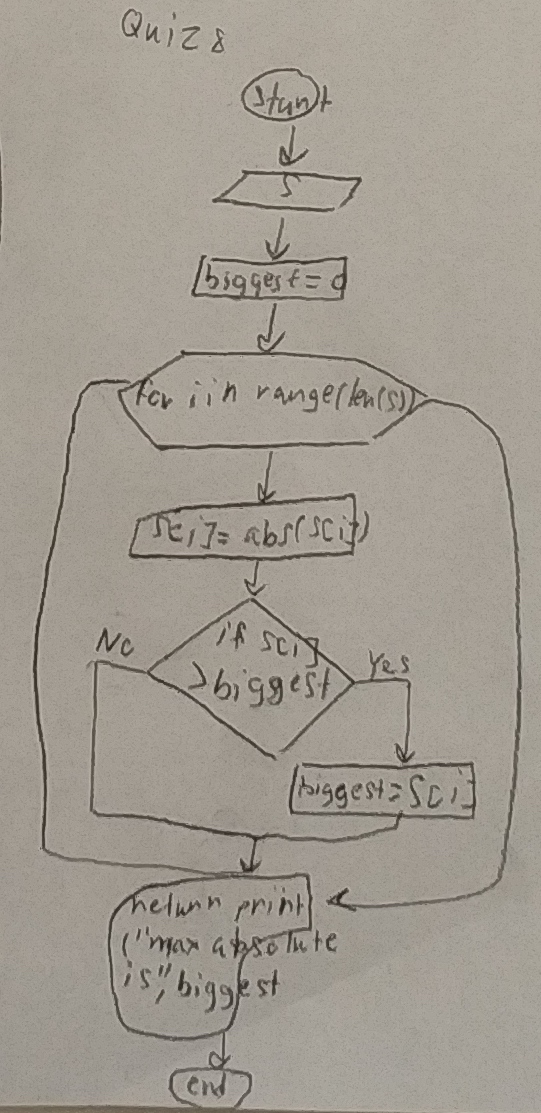 Quiz 8
Start
S
biggest = 0
for i in range(len(S))
S[i] = abs(S[i])
if S[i]
> biggest
No
Yes
biggest = S[i]
return print
("max absolute
is", biggest
end